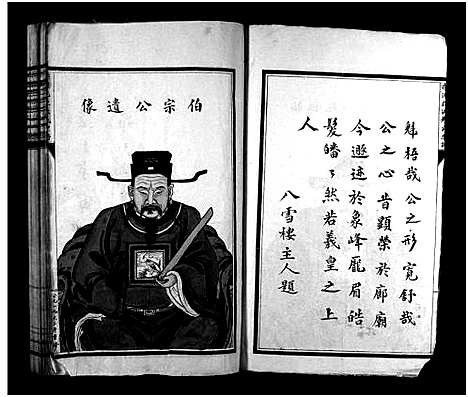 伯宗公遺像
魁梧哉公之形寬舒哉
公之心昔顯榮於廊廟
今遯迹於象峰龐眉皓
髮皤〻然若羲皇之上
人
八雪樓主人題